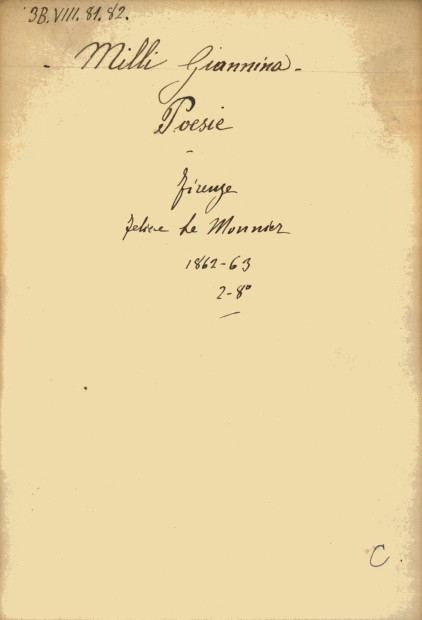 3B.VIII.81.82.
- Milli Giannina -
Poesie
-
Firenze
Felice Le Monnier
1862-63
2-8º
C